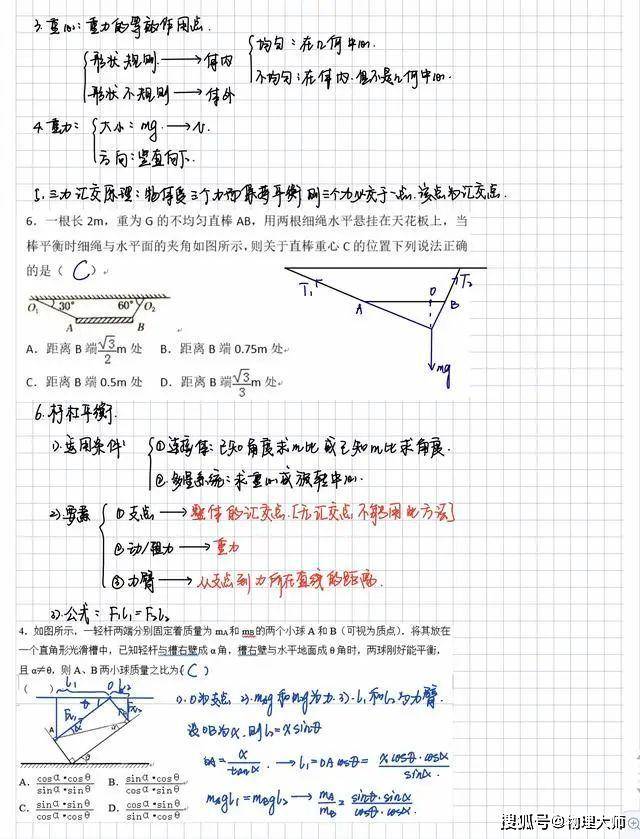 3.重心:重力的等效作用点.
{形状规则 → 体内 {均匀:在几何中心.
不均匀:在体内.但不是几何中心.
形状不规则 → 体外
4.重力:{大小:mg. → N.
方向:竖直向下.
5.三力汇交原理:物体受三个力而保持平衡则三个力必交于一点.该点为汇交点.
6. 一根长 2m,重为 G 的不均匀直棒 AB,用两根细绳水平悬挂在天花板上,当
棒平衡时细绳与水平面的夹角如图所示,则关于直棒重心 C 的位置下列说法正确
的是( C )
O₁ 30° 60° O₂
A B
T₁ T₂
A O B
mg
A. 距离 B 端√3/2m 处 B. 距离 B 端 0.75m 处
C. 距离 B 端 0.5m 处 D. 距离 B 端√3/3m 处
6.杠杆平衡.
1).适用条件:{①连接体:已知角度求m比或已知m比求角度.
2).要素 {①支点 → 整体的汇交点.[无汇交点.不能用此方法]
②动/阻力 → 重力
③力臂 → 从支点到力所在直线的距离.
3).公式:F₁L₁=F₂L₂
4. 如图所示,一轻杆两端分别固定着质量为 mA 和 mB 的两个小球 A 和 B(可视为质点).将其放在
一个直角形光滑槽中,已知轻杆与槽右壁成 α 角,槽右壁与水平地面成 θ 角时,两球刚好能平衡,
且 α≠θ,则 A、B 两小球质量之比为( C )
( )
1).O为支点 2).mAg和mBg为力.3).L₁和L₂为力臂.
设OB为x.则L₂=xsinθ
OA=x/tanα. → L₁=OAcosθ= x·cosθ·cosα/sinα.
mAgL₁=mBgL₂ → mA/mB = sinθ·sinα/cosθ·cosα.
A. cosα•cosθ/sinα•sinθ B. sinα•cosθ/cosα•sinθ
C. sinα•sinθ/cosα•cosθ D. cosα•sinθ/sinα•cosθ
搜狐号@物理大师